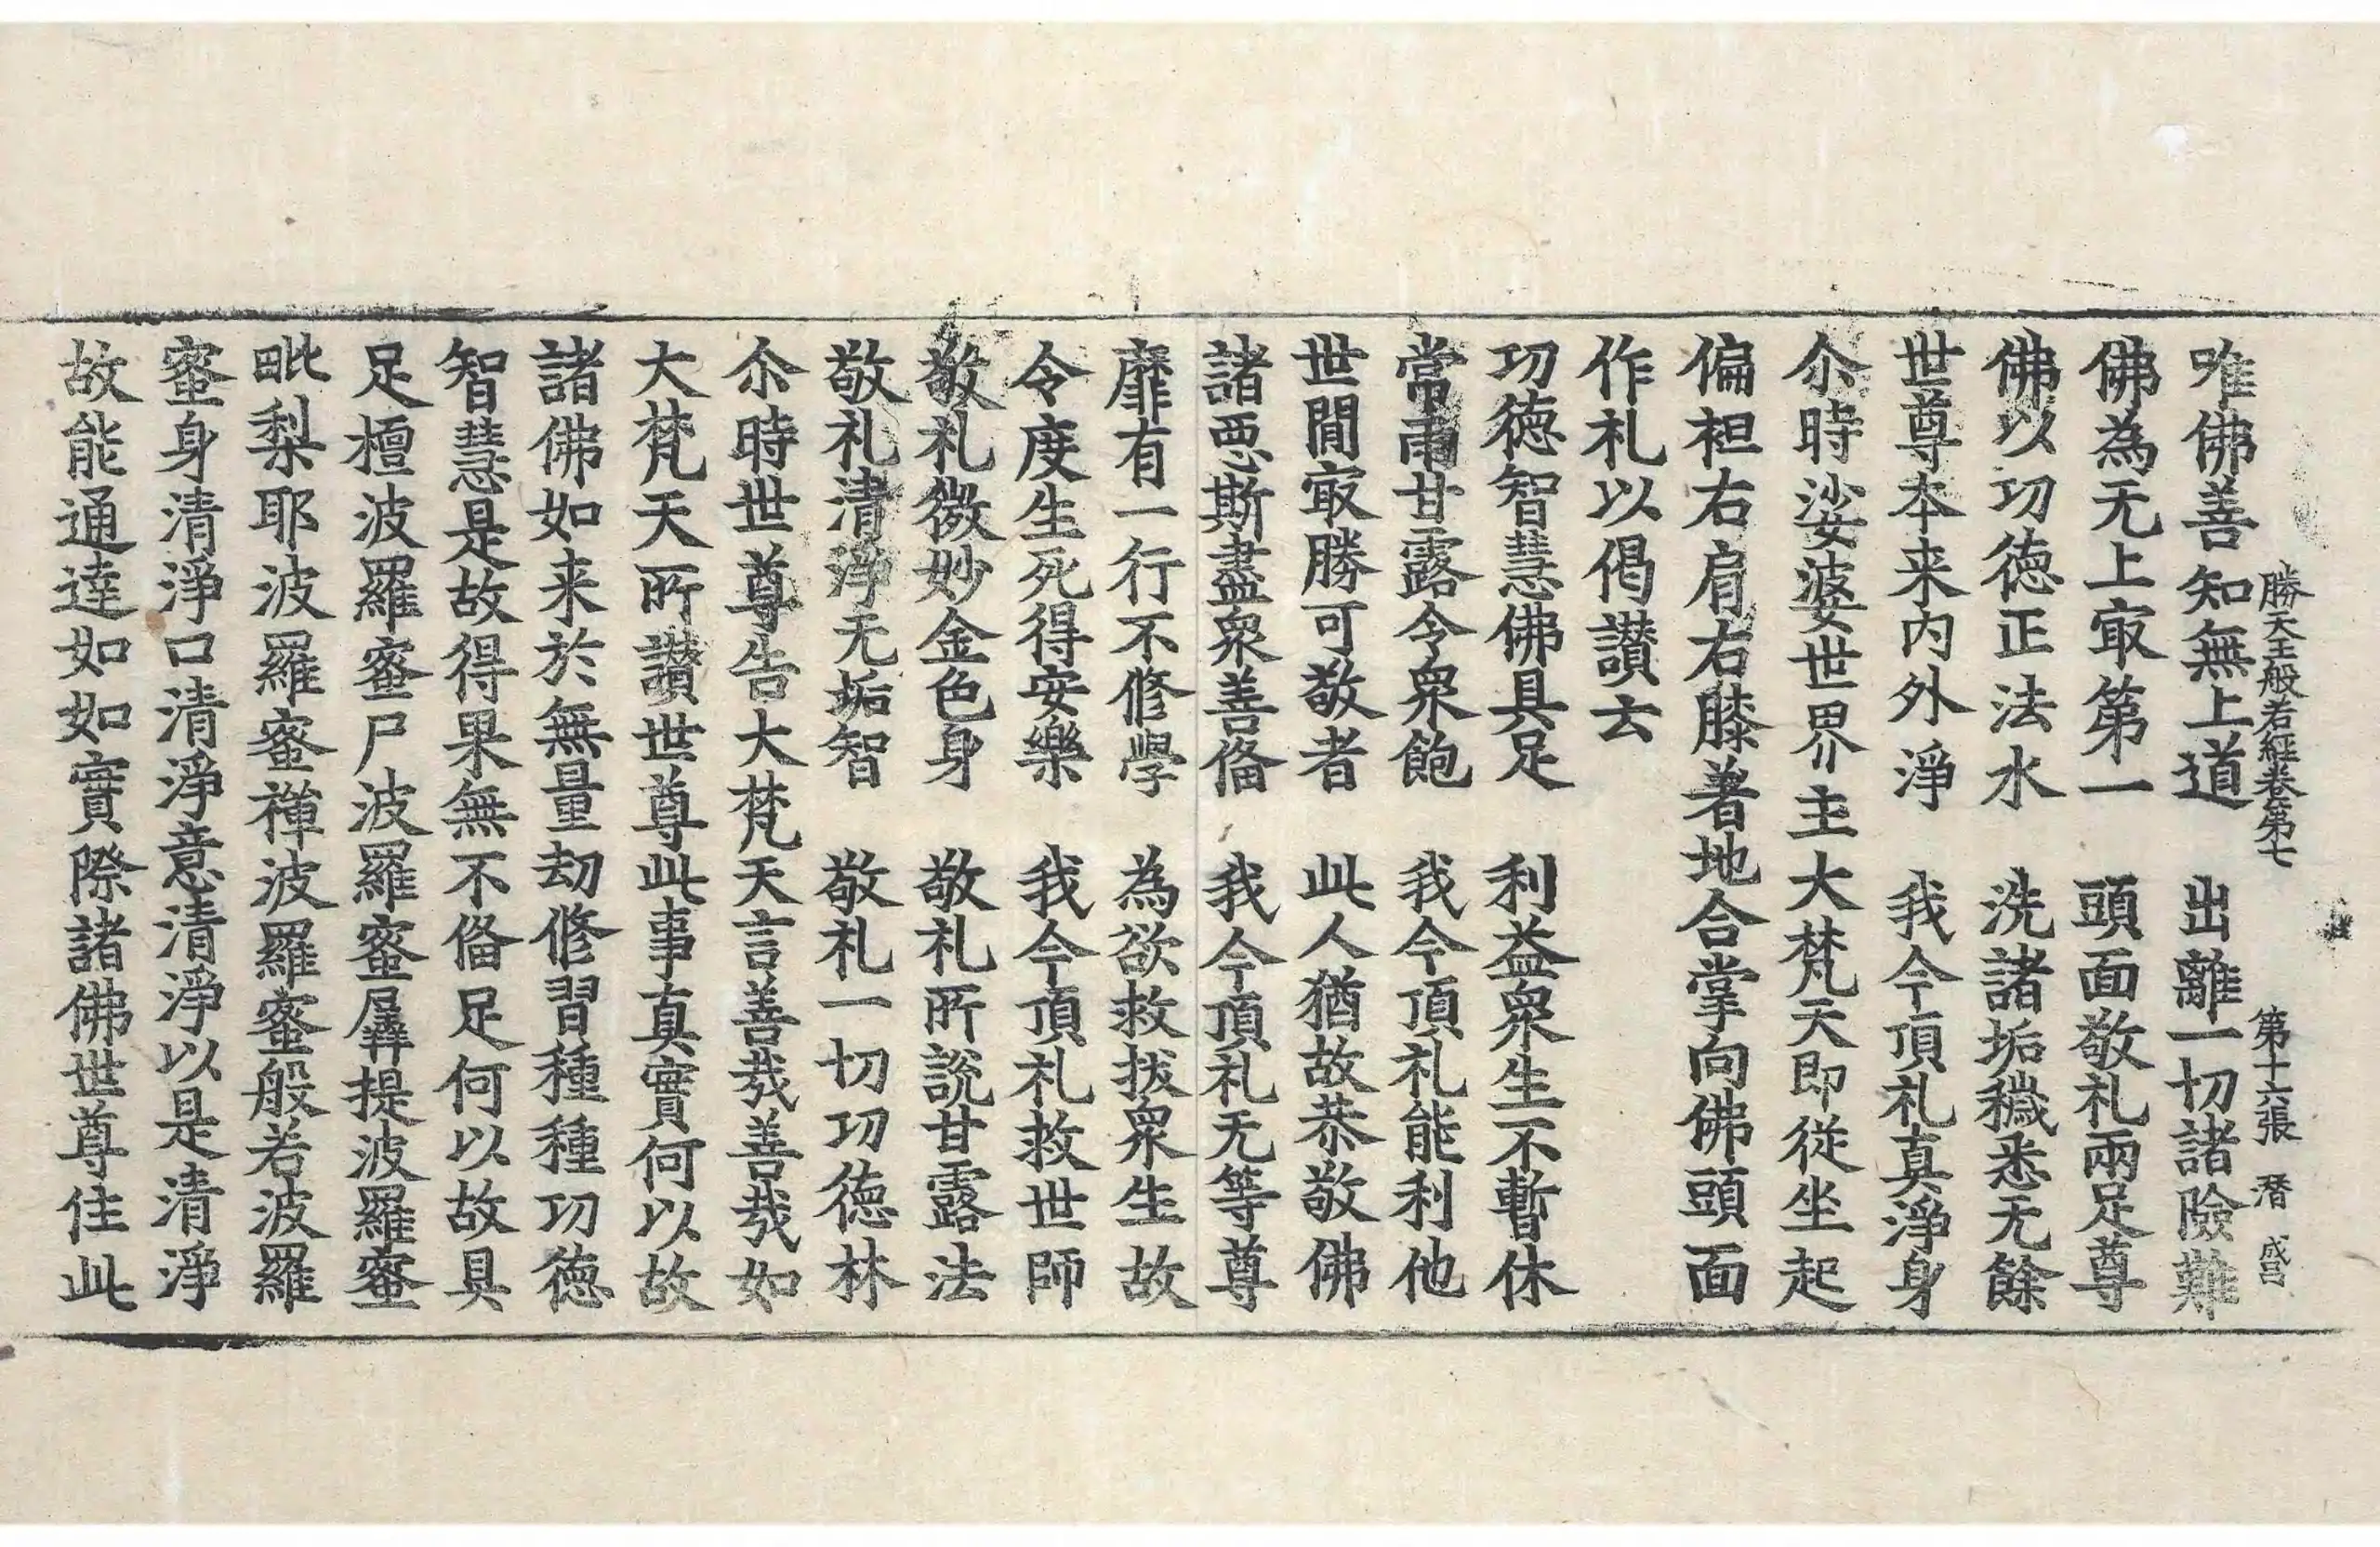 勝天王般若經卷第七　第十六張　㬜　盛昌
唯佛善知無上道　出離一切諸險難
佛為无上㝡第一　頭面敬礼兩足尊
佛以功徳正法水　洗諸垢穢悉无餘
世尊本来内外淨　我今頂礼真淨身
尒時娑婆世界主大梵天即從坐起
偏袒右肩右膝著地合掌向佛頭面
作礼以偈讃去
功徳智慧佛具足　利益衆生不暫休
常雨甘露令衆飽　我今頂礼能利他
世間㝡勝可敬者　此人猶故恭敬佛
諸惡斯盡衆善俻　我今頂礼无等尊
靡有一行不修學　為欲救拔衆生故
令度生死得安樂　我今頂礼救世師
敬礼微妙金色身　敬礼所說甘露法
敬礼清淨无垢智　敬礼一切功徳林
尒時世尊告大梵天言善㢤善㢤如
大梵天所讃世尊此事真實何以故
諸佛如来於無量劫修習種種功徳
智慧是故得果無不俻足何以故具
足檀波羅蜜尸波羅蜜羼提波羅蜜
毗梨耶波羅蜜禪波羅蜜般若波羅
蜜身清淨口清淨意清淨以是清淨
故能通達如如實際諸佛世尊住此